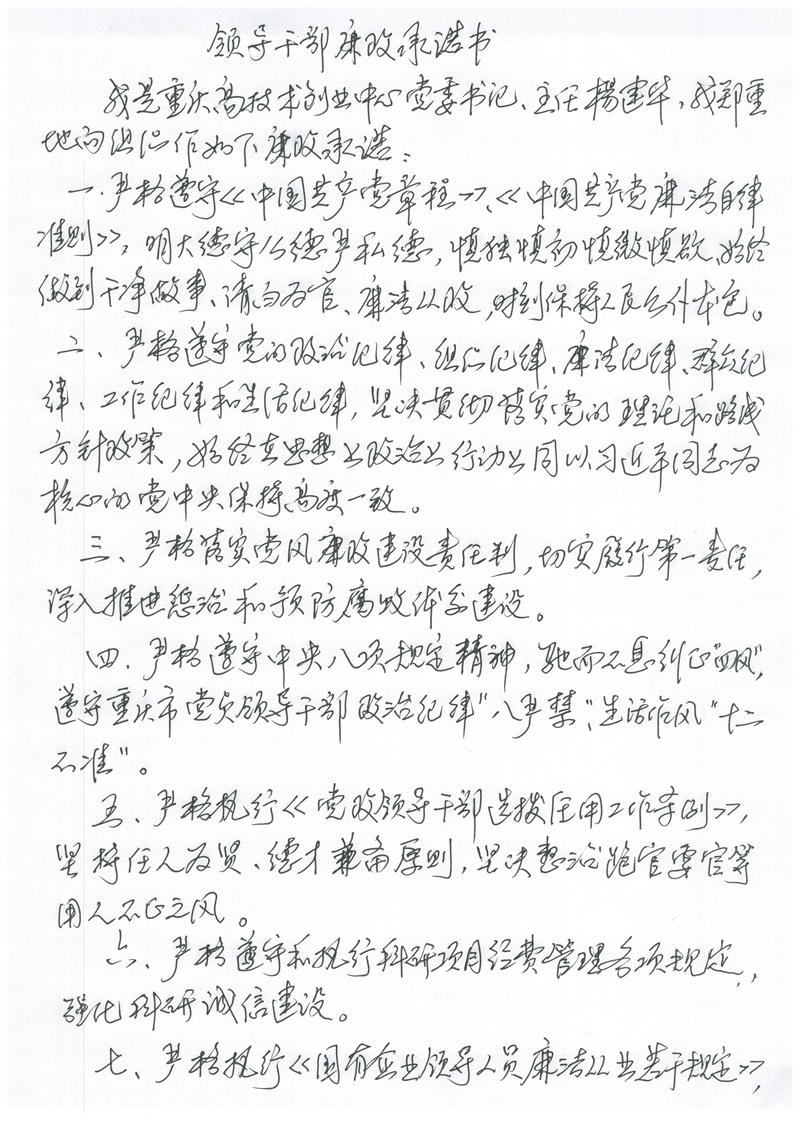 领导干部廉政承诺书
我是重庆高技术创业中心党委书记、主任杨建华，我郑重
地向组织作如下廉政承诺：
一、严格遵守《中国共产党章程》、《中国共产党廉洁自律
准则》，明大德守公德严私德，慎独慎初慎微慎欲，始终
做到干净做事、清白为官、廉洁从政，时刻保持人民公仆本色。
二、严格遵守党的政治纪律、组织纪律、廉洁纪律、群众纪
律、工作纪律和生活纪律，坚决贯彻落实党的理论和路线
方针政策，始终在思想上政治上行动上同以习近平同志为
核心的党中央保持高度一致。
三、严格落实党风廉政建设责任制，切实履行第一责任，
深入推进惩治和预防腐败体系建设。
四、严格遵守中央八项规定精神，驰而不息纠正“四风”，
遵守重庆市党员领导干部政治纪律“八严禁”、生活作风“十二
不准”。
五、严格执行《党政领导干部选拔任用工作条例》，
坚持任人为贤、德才兼备原则，坚决惩治跑官要官等
用人不正之风。
六、严格遵守和执行科研项目经费管理各项规定，
强化科研诚信建设。
七、严格执行《国有企业领导人员廉洁从业若干规定》，